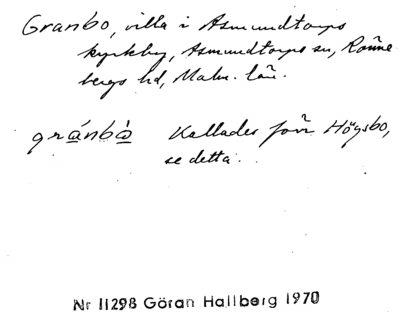 Granbo, villa i Asmundtorps
kyrkby, Asmundtorps sn, Rönne
bergs hd, Malm. län.
gránbò Kallades förr Högsbo,
se detta.
Nr 11298 Göran Hallberg 1970